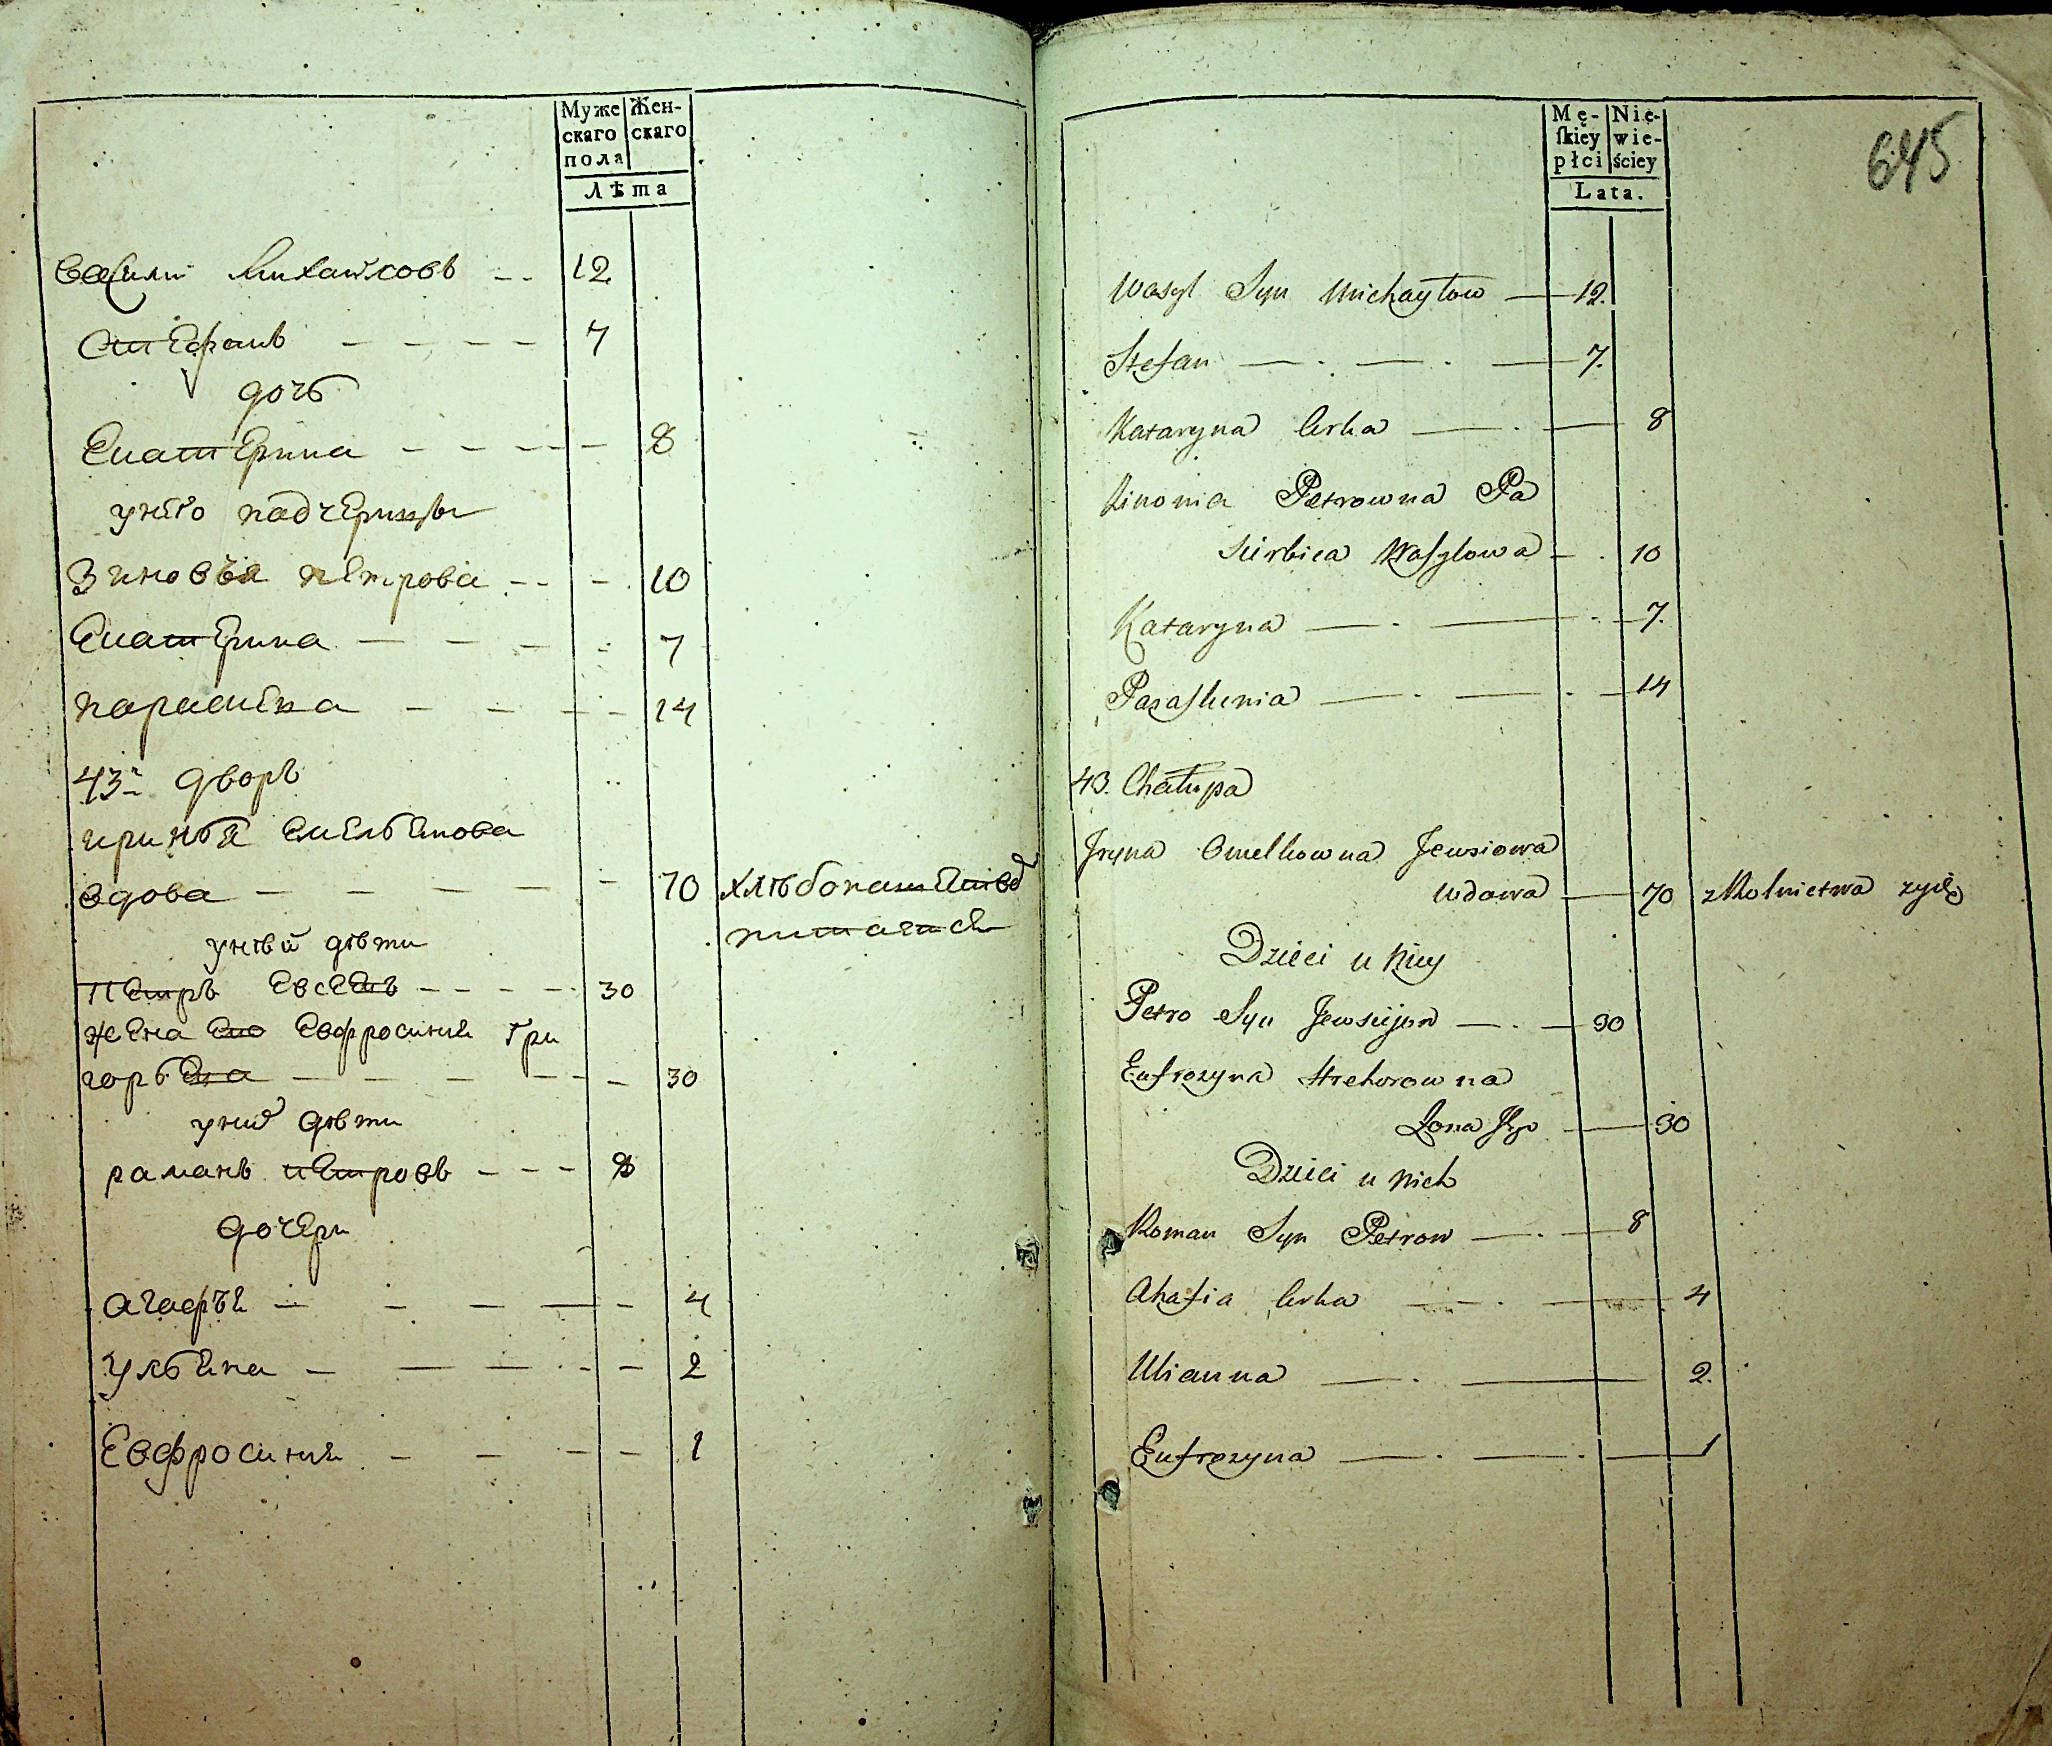 Муже
скаго
пола
Жен-
скаго
Лѣта
Васили Михайловъ -- 12
Стефанъ - - - - 7
дочь
Екатерина - - - - - 8
у него падчерицы
Зиновья петрова -- - 10
Екатерина - - - - 7
параскева - - - - 14
43й дворъ
ириньа Емельенова
вдова - - - - - 70 хлѣбопашествод
питается
у ней дѣти
петръ Евсеевъ - - - - 30
жена его Евфросиния гри
горьева - - - - - 30
у них дѣти
раманъ петровъ - - - 8
дочери
агафья - - - - - 4
ульяна - - - - - 2
Евфросиния - - - - 1
Mę-
ſkiey
płci
Nie-
wie-
ściey
Lata.
645
Wasyl Syn Michayłow — 12.
Stefan — . — . — 7.
Kataryna Corka — . — 8
Zinonia Petrowna Pa
sierbica Wasylowa - . 10
Kataryna — . — . — 7.
Paraskenia — . — . — 14
43. Chałupa
Jryna Omelkowna Jewsiowa
wdowa — 70 z Rolnictwa żyie
Dzieci u Niey
Petro Syn Jewsiejow — . — 30
Eufrozyna Hrehorowna
Żona Jego — 30
Dzieci u Nich
Roman Syn Petrow — . — 8
Ahafia Corka — . — 4
Ulianna — . — 2.
Eufrozyna — . — . — 1